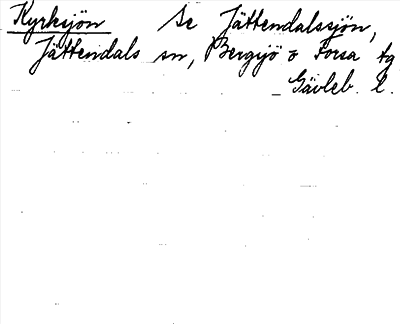 Kyrksjön Se Jättendalssjön,
Jättendals sn, Bergsjö o Forsa tg
Gävleb. l.